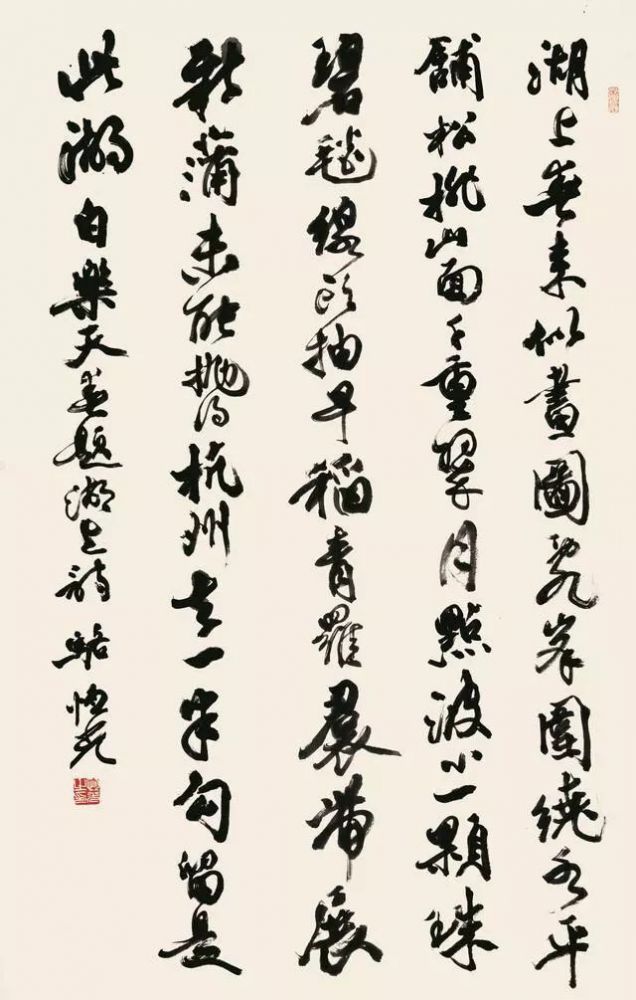 湖上春来似畫圖亂峯圍繞水平
舖松排山面千重翠月點波心一顆珠
碧毯線頭抽早稻青羅裠帶展
新蒲未能抛得杭州去一半勾留是
此湖 白樂天春題湖上詩 駱恒光